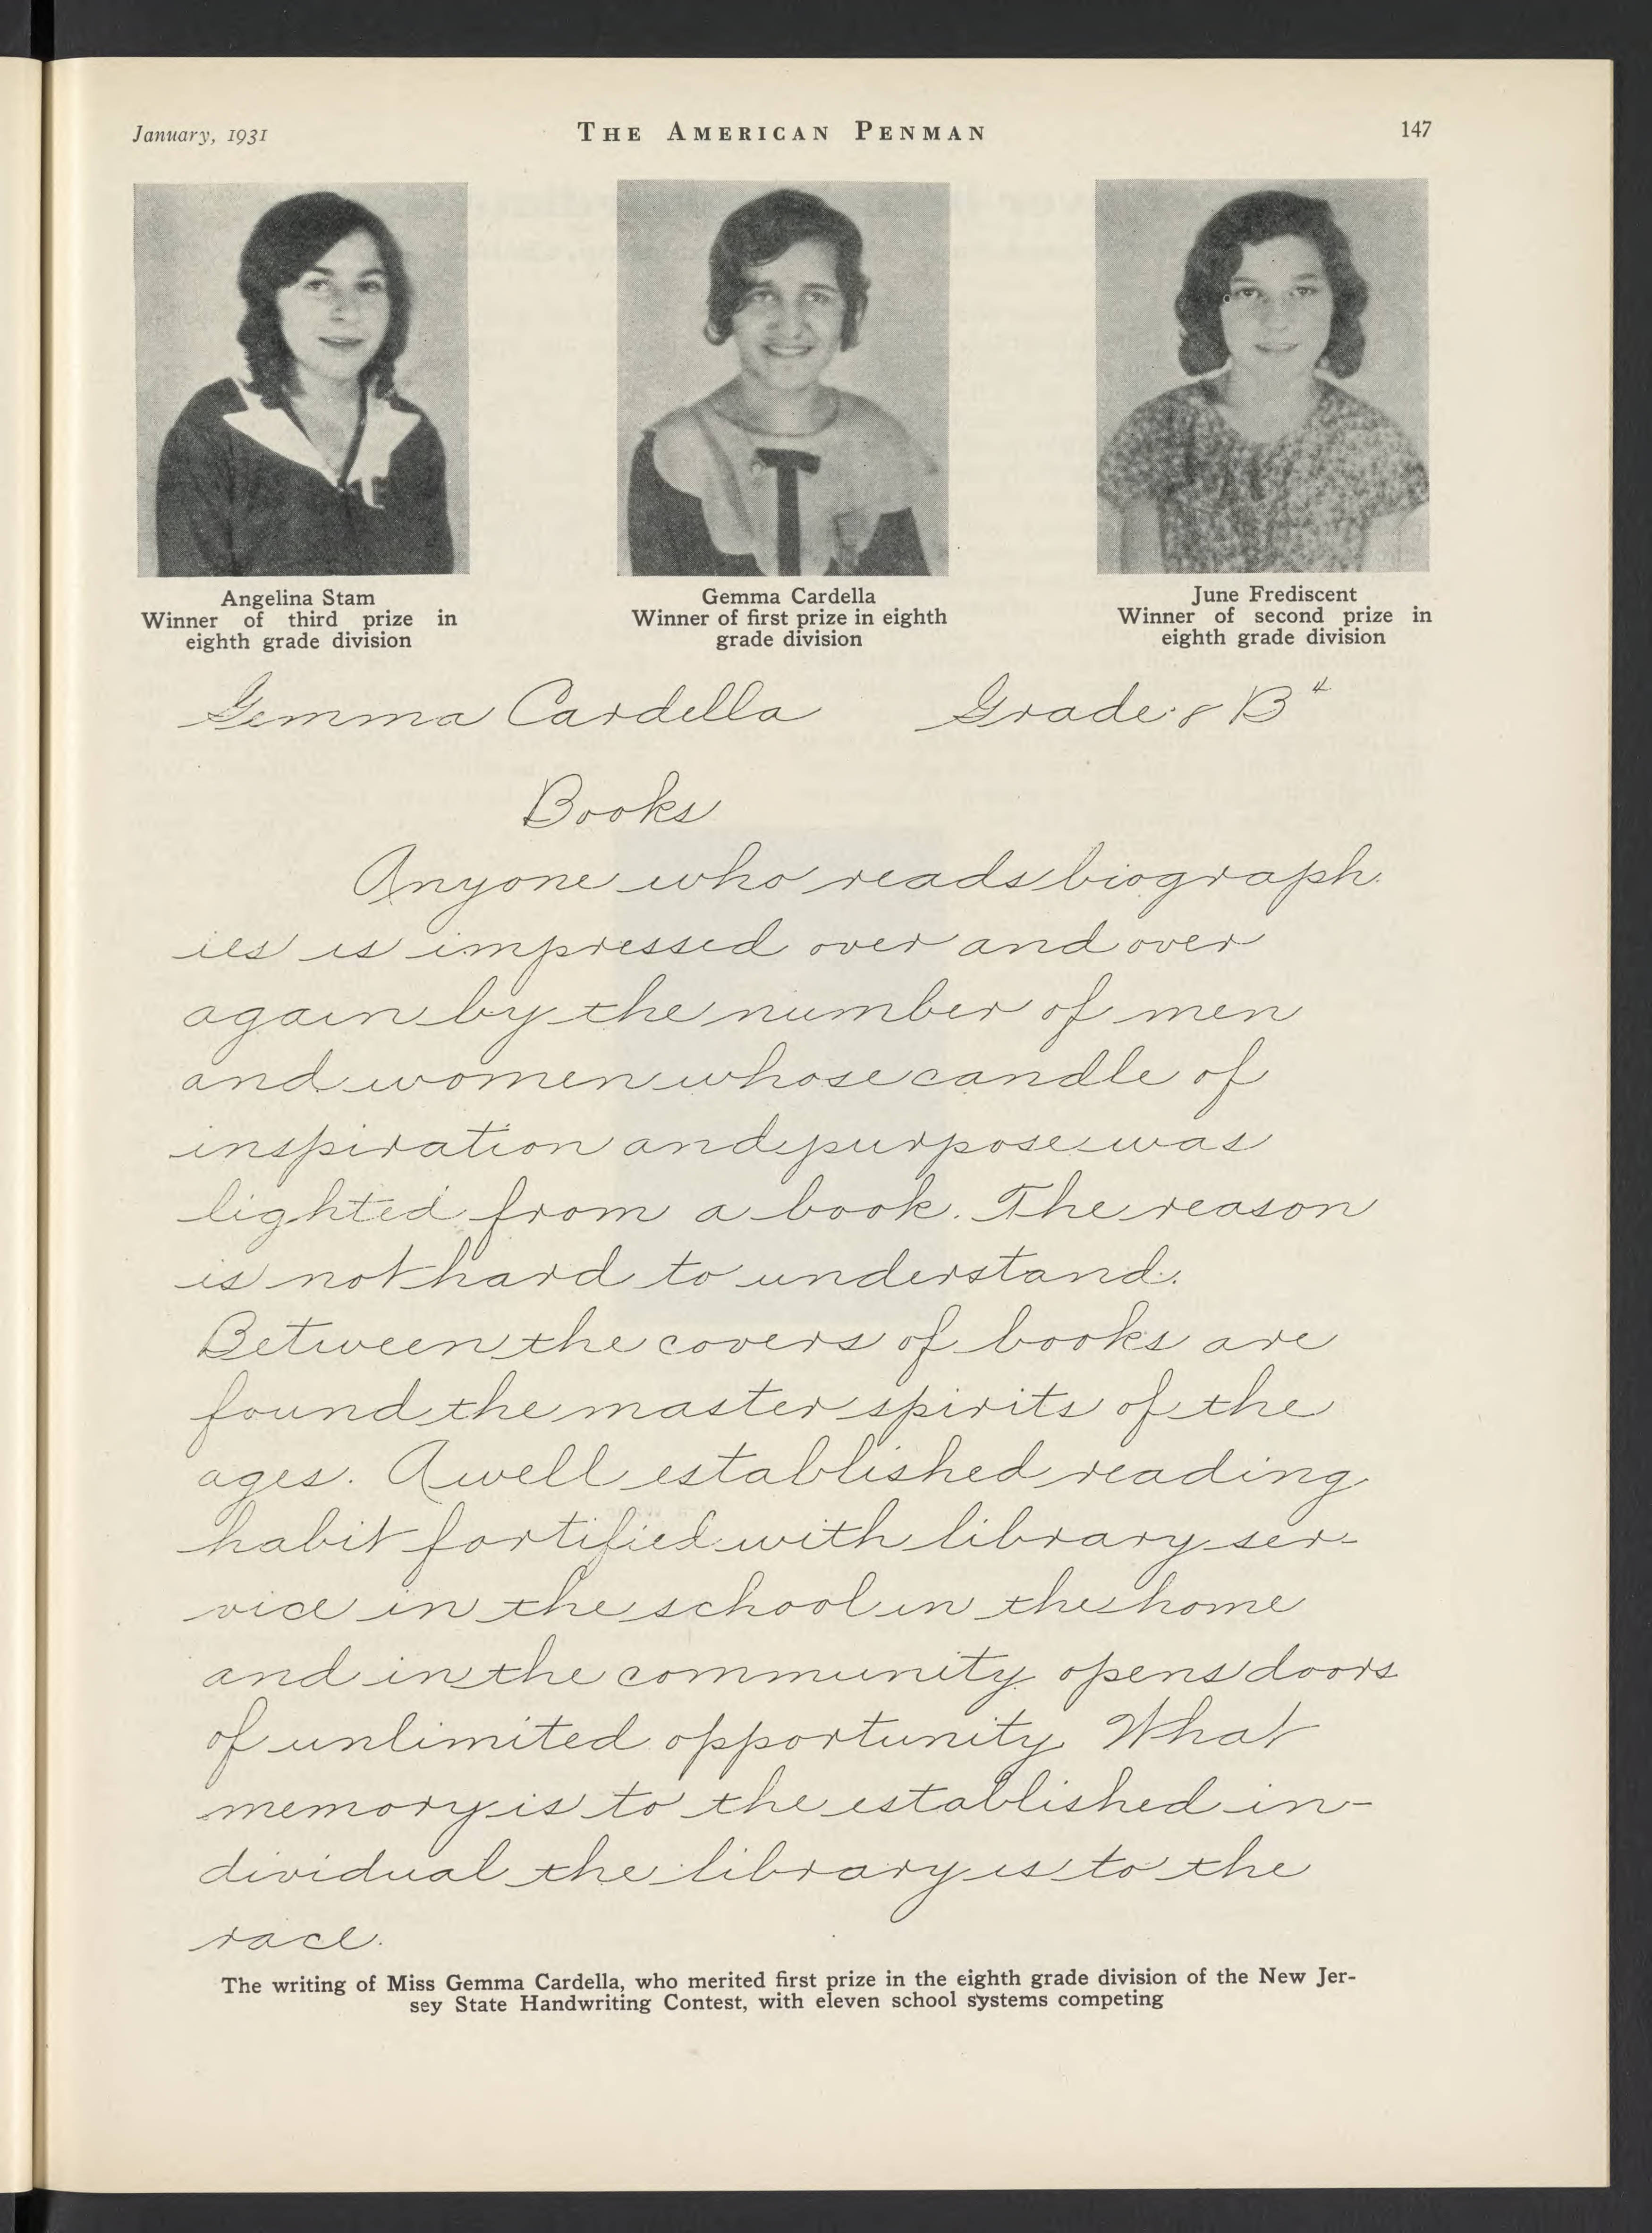 January, 1931
THE AMERICAN PENMAN
147
Angelina Stam
Winner of third prize in
eighth grade division
Gemma Cardella
Winner of first prize in eighth
grade division
June Frediscent
Winner of second prize in
eighth grade division
Gemma Cardella Grade 8 B⁴
Books
Anyone who reads biograph-
ies is impressed over and over
again by the number of men
and women whose candle of
inspiration and purpose was
lighted from a book. The reason
is not hard to understand.
Between the covers of books are
found the master spirits of the
ages. A well established reading
habit fortified with library ser-
vice in the school in the home
and in the community opens doors
of unlimited opportunity. What
memory is to the established in-
dividual the library is to the
race.
The writing of Miss Gemma Cardella, who merited first prize in the eighth grade division of the New Jer-
sey State Handwriting Contest, with eleven school systems competing